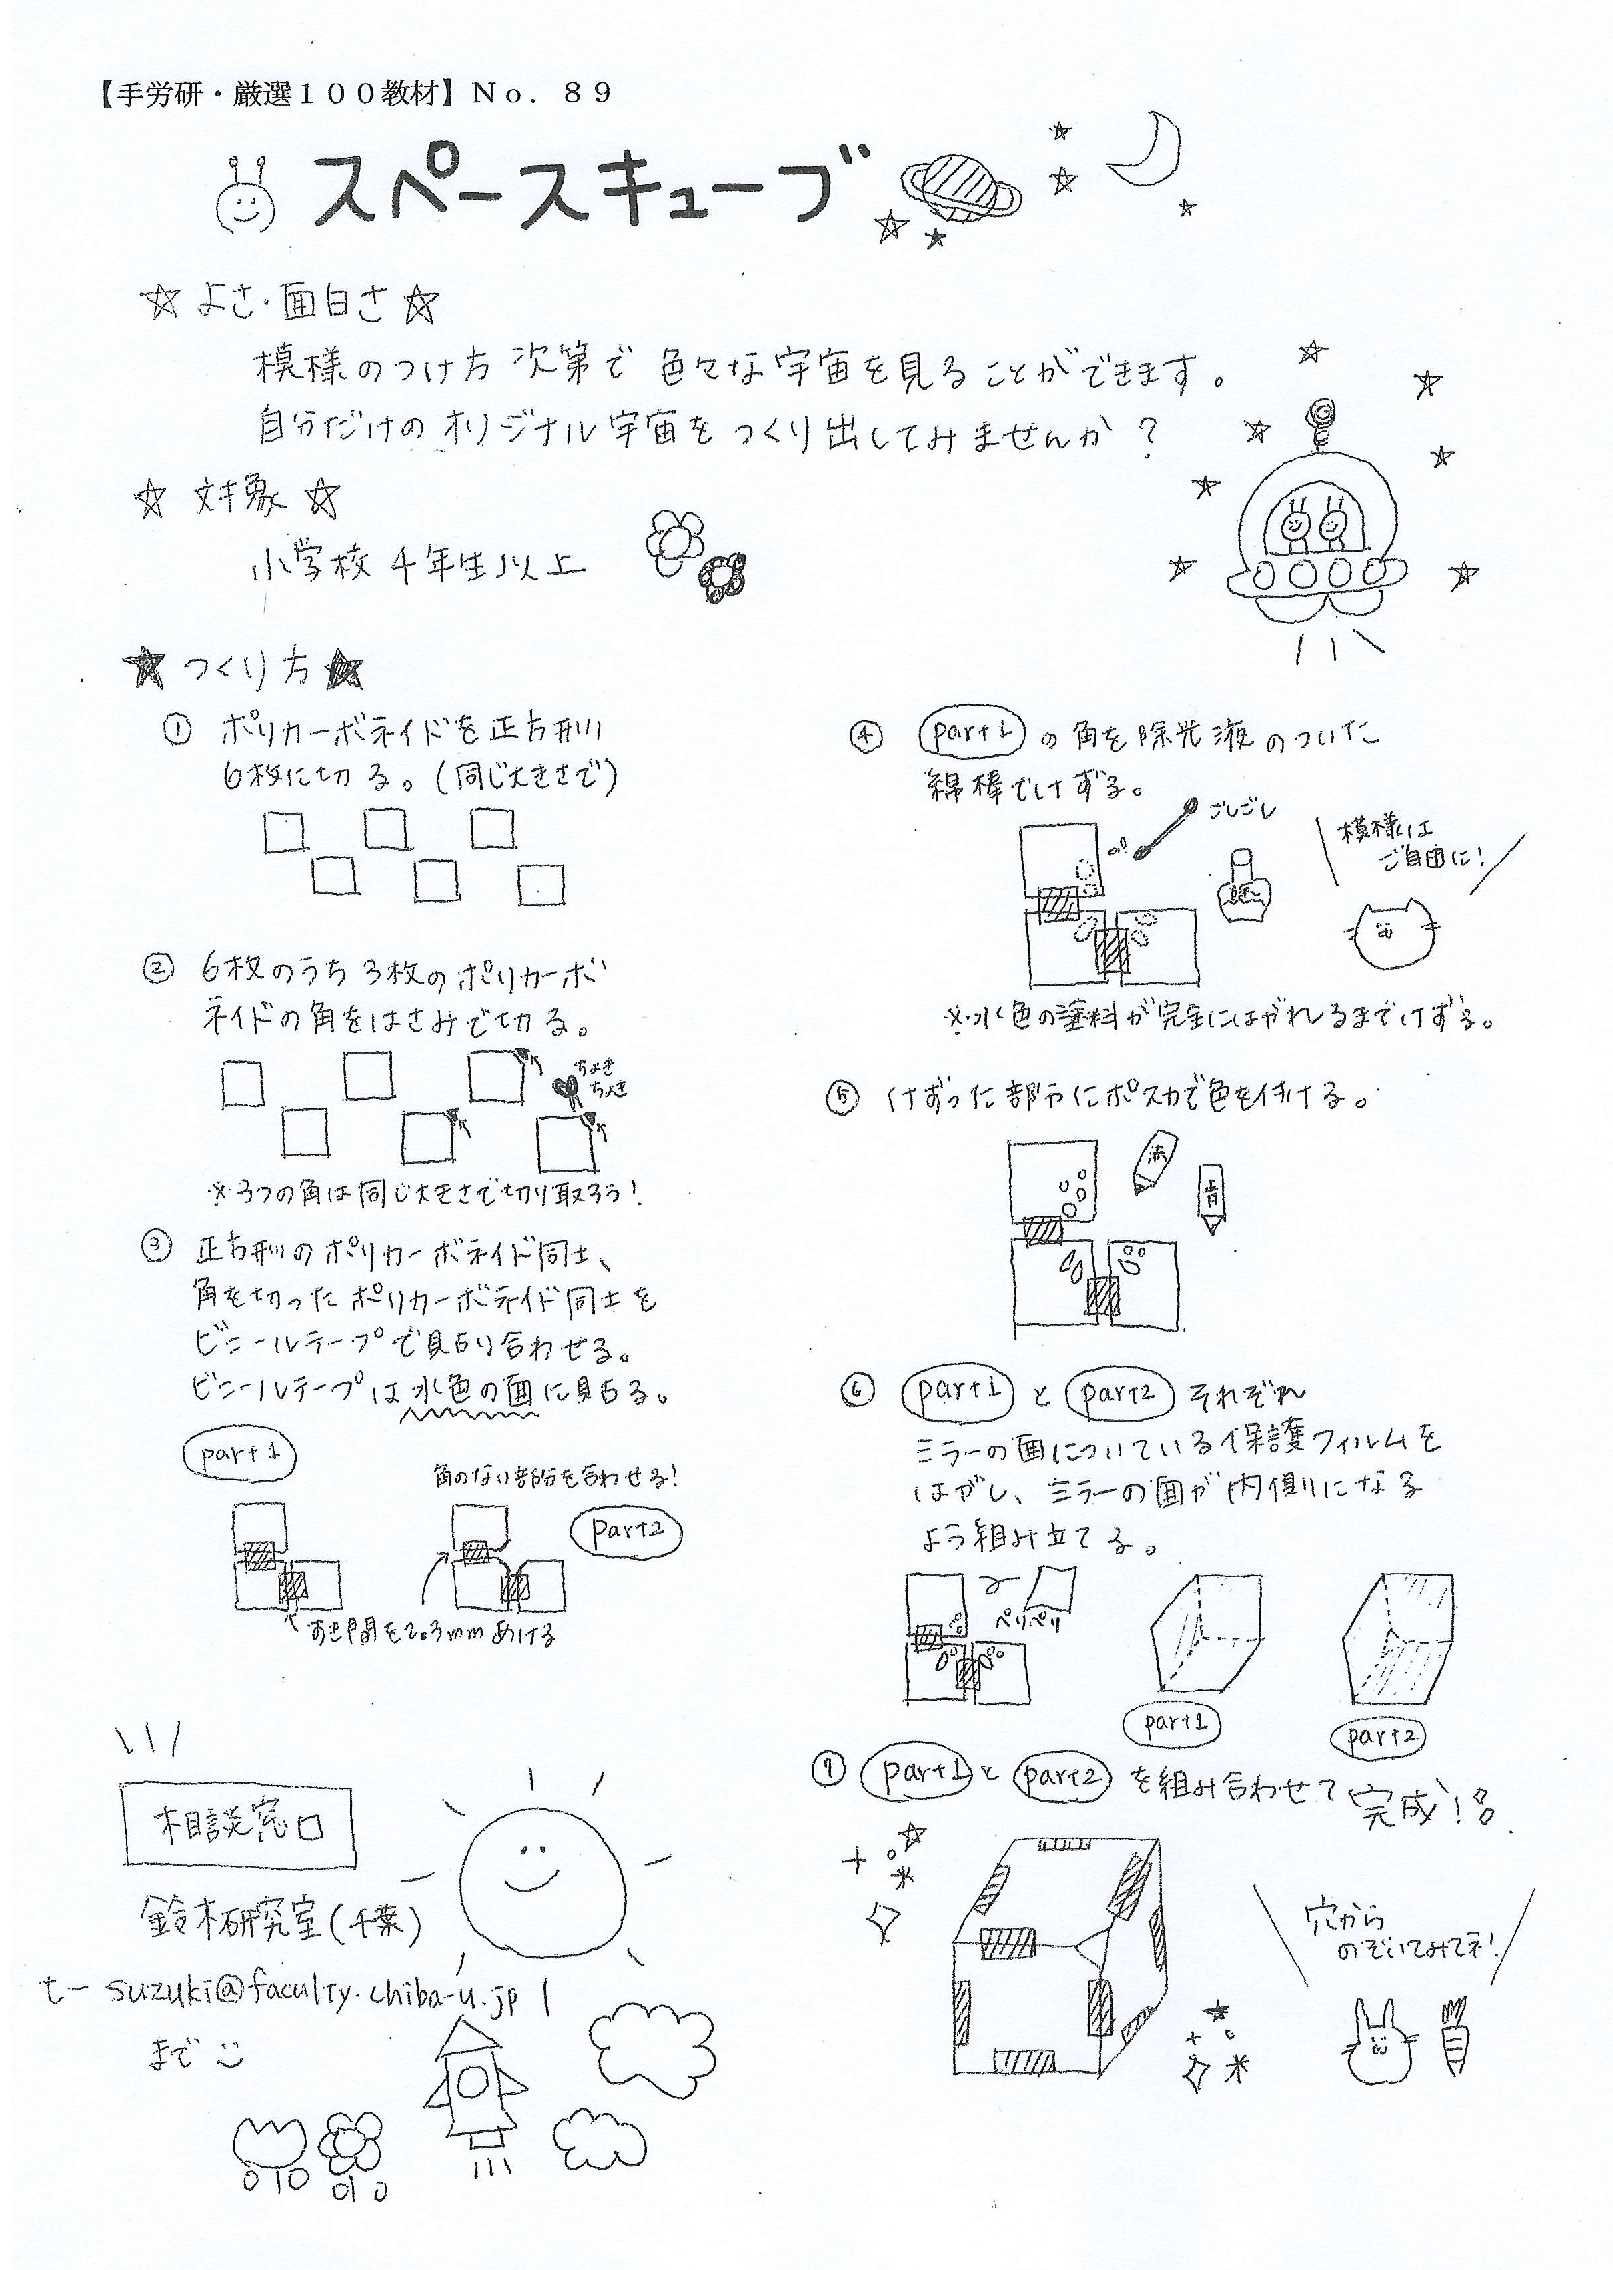 【手労研・厳選１００教材】Ｎｏ．８９
スペースキューブ
☆よさ・面白さ☆
模様のつけ方次第で色々な宇宙を見ることができます。
自分だけのオリジナル宇宙をつくり出してみませんか？
☆対象☆
小学校4年生以上
★つくり方★
① ポリカーボネイドを正方形
6枚に切る。(同じ大きさで)
② 6枚のうち3枚のポリカーボ
ネイドの角をはさみで切る。
ちょき
ちょき
※3つの角は同じ大きさで切り取ろう!
③ 正方形のポリカーボネイド同士、
角を切ったポリカーボネイド同士を
ビニールテープで貼り合わせる。
ビニールテープは水色の面に貼る。
part1
角のない部分を合わせる!
part2
すき間を2.3mmあける
相談窓口
鈴木研究室(千葉)
t-suzuki@faculty.chiba-u.jp
まで
④ part1の角を除光液のついた
綿棒でけずる。
ごしごし
模様は
ご自由に!
※水色の塗料が完全にはがれるまでけずる。
⑤ けずった部分にポスカで色を付ける。
赤
青
⑥ part1とpart2それぞれ
ミラーの面についている保護フィルムを
はがし、ミラーの面が内側になる
よう組み立てる。
ペリペリ
part1
part2
⑦ part1とpart2を組み合わせて完成!!
穴から
のぞいてみてネ!